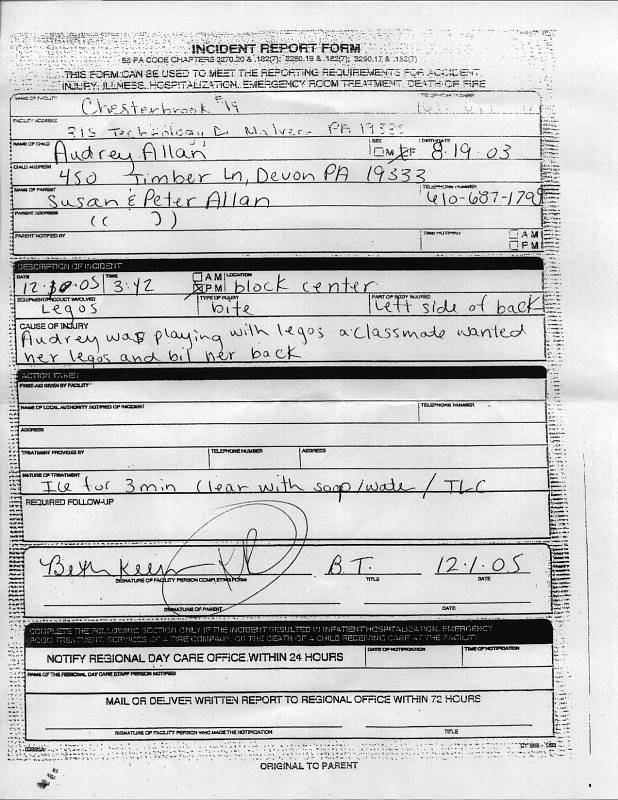 INCIDENT REPORT FORM
55 PA CODE CHAPTERS 3270.20 & .182(7); 3280.19 & .182(7); 3290.17 & .182(7)
THIS FORM CAN BE USED TO MEET THE REPORTING REQUIREMENTS FOR ACCIDENT,
INJURY, ILLNESS, HOSPITALIZATION, EMERGENCY ROOM TREATMENT, DEATH OR FIRE
NAME OF FACILITY TELEPHONE NUMBER
Chesterbrook #19
FACILITY ADDRESS
315 Technology Dr Malvern PA 19355
NAME OF CHILD SEX BIRTHDATE
Audrey Allan M F 8.19.03
CHILD ADDRESS
450 Timber Ln, Devon PA 19333
NAME OF PARENT TELEPHONE NUMBER
Susan & Peter Allan 610-687-1799
PARENT ADDRESS
(( ))
PARENT NOTIFIED BY TIME NOTIFIED AM
PM
DESCRIPTION OF INCIDENT
DATE TIME AM LOCATION
12. .05 3:42 PM block center
EQUIPMENT/PRODUCT INVOLVED TYPE OF INJURY PART OF BODY INJURED
Legos bite left side of back
CAUSE OF INJURY
Audrey was playing with legos a classmate wanted
her legos and bit her back
ACTION TAKEN
FIRST-AID GIVEN BY FACILITY
NAME OF LOCAL AUTHORITY NOTIFIED OF INCIDENT TELEPHONE NUMBER
ADDRESS
TREATMENT PROVIDED BY TELEPHONE NUMBER ADDRESS
NATURE OF TREATMENT
Ice for 3 min clear with soap/water / TLC
REQUIRED FOLLOW-UP
Beth B.T. 12.1.05
SIGNATURE OF FACILITY PERSON COMPLETING FORM TITLE DATE
SIGNATURE OF PARENT DATE
COMPLETE THE FOLLOWING SECTION ONLY IF THE INCIDENT RESULTED IN INPATIENT HOSPITALIZATION, EMERGENCY
ROOM TREATMENT, SERVICES OF A FIRE COMPANY, OR THE DEATH OF A CHILD RECEIVING CARE AT THE FACILITY
NOTIFY REGIONAL DAY CARE OFFICE WITHIN 24 HOURS DATE OF NOTIFICATION TIME OF NOTIFICATION
NAME OF THE REGIONAL DAY CARE STAFF PERSON NOTIFIED
MAIL OR DELIVER WRITTEN REPORT TO REGIONAL OFFICE WITHIN 72 HOURS
SIGNATURE OF FACILITY PERSON WHO MADE THE NOTIFICATION TITLE
ORIGINAL TO PARENT